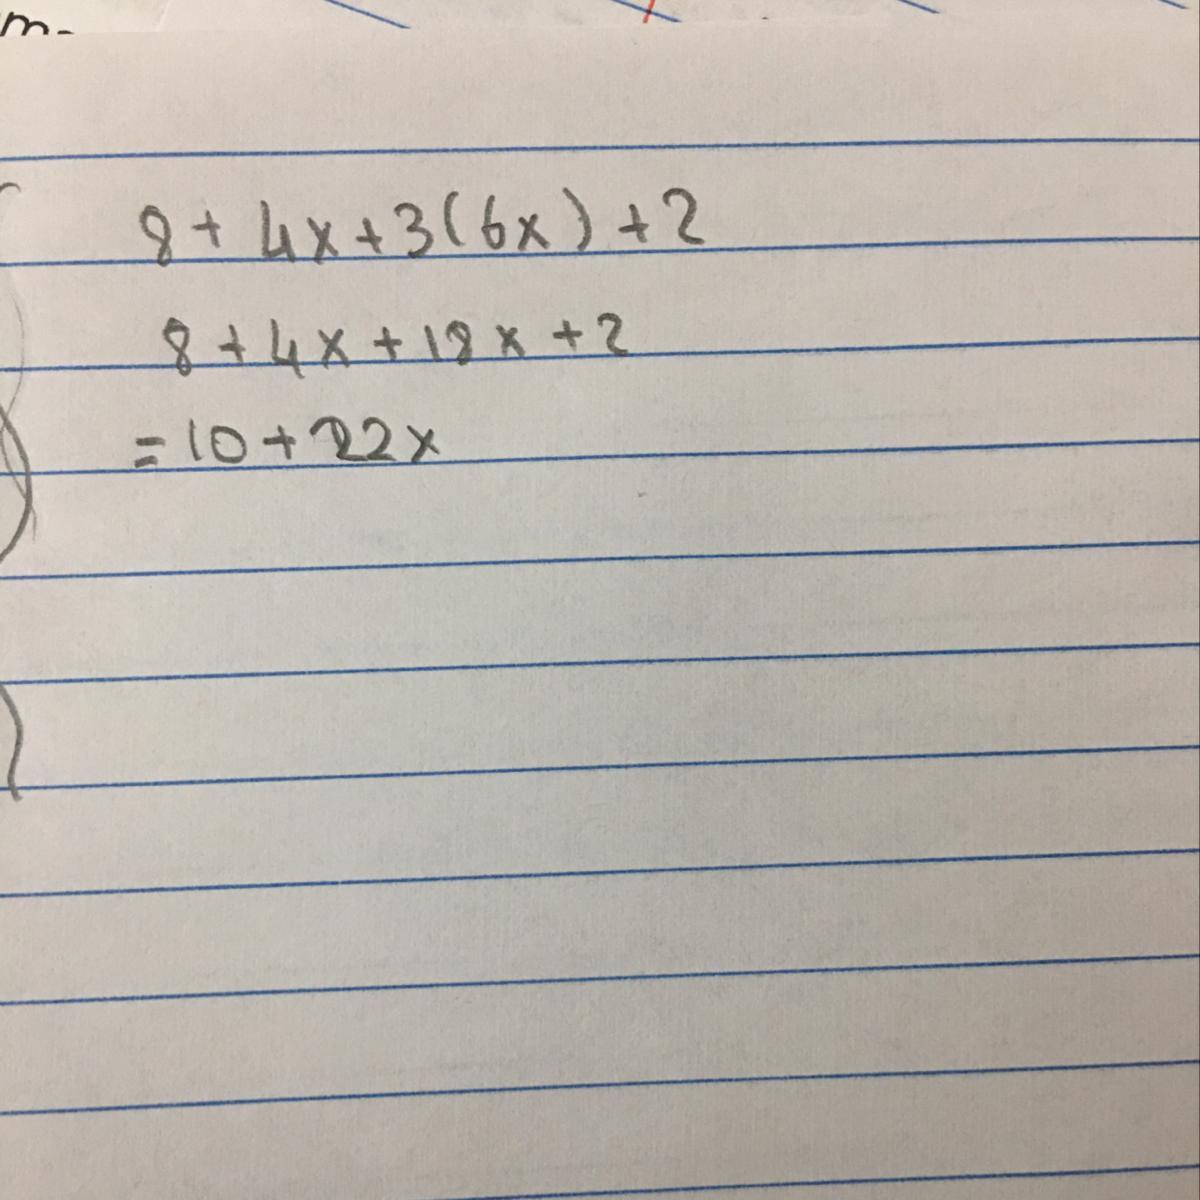 m.
8 + 4x + 3(6x) + 2
8 + 4x + 18x + 2
= 10 + 22x